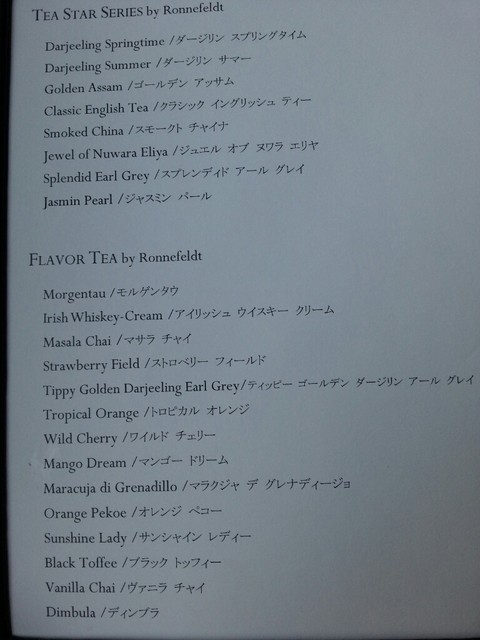 TEA STAR SERIES by Ronnefeldt
Darjeeling Springtime /ダージリン スプリングタイム
Darjeeling Summer /ダージリン サマー
Golden Assam /ゴールデン アッサム
Classic English Tea /クラシック イングリッシュ ティー
Smoked China /スモークト チャイナ
Jewel of Nuwara Eliya /ジュエル オブ ヌワラ エリヤ
Splendid Earl Grey /スプレンディド アール グレイ
Jasmin Pearl /ジャスミン パール
FLAVOR TEA by Ronnefeldt
Morgentau /モルゲンタウ
Irish Whiskey-Cream /アイリッシュ ウイスキー クリーム
Masala Chai /マサラ チャイ
Strawberry Field /ストロベリー フィールド
Tippy Golden Darjeeling Earl Grey/ティッピー ゴールデン ダージリン アール グレイ
Tropical Orange /トロピカル オレンジ
Wild Cherry /ワイルド チェリー
Mango Dream /マンゴー ドリーム
Maracuja di Grenadillo /マラクジャ デ グレナディージョ
Orange Pekoe /オレンジ ペコー
Sunshine Lady /サンシャイン レディー
Black Toffee /ブラック トッフィー
Vanilla Chai /ヴァニラ チャイ
Dimbula /ディンブラ